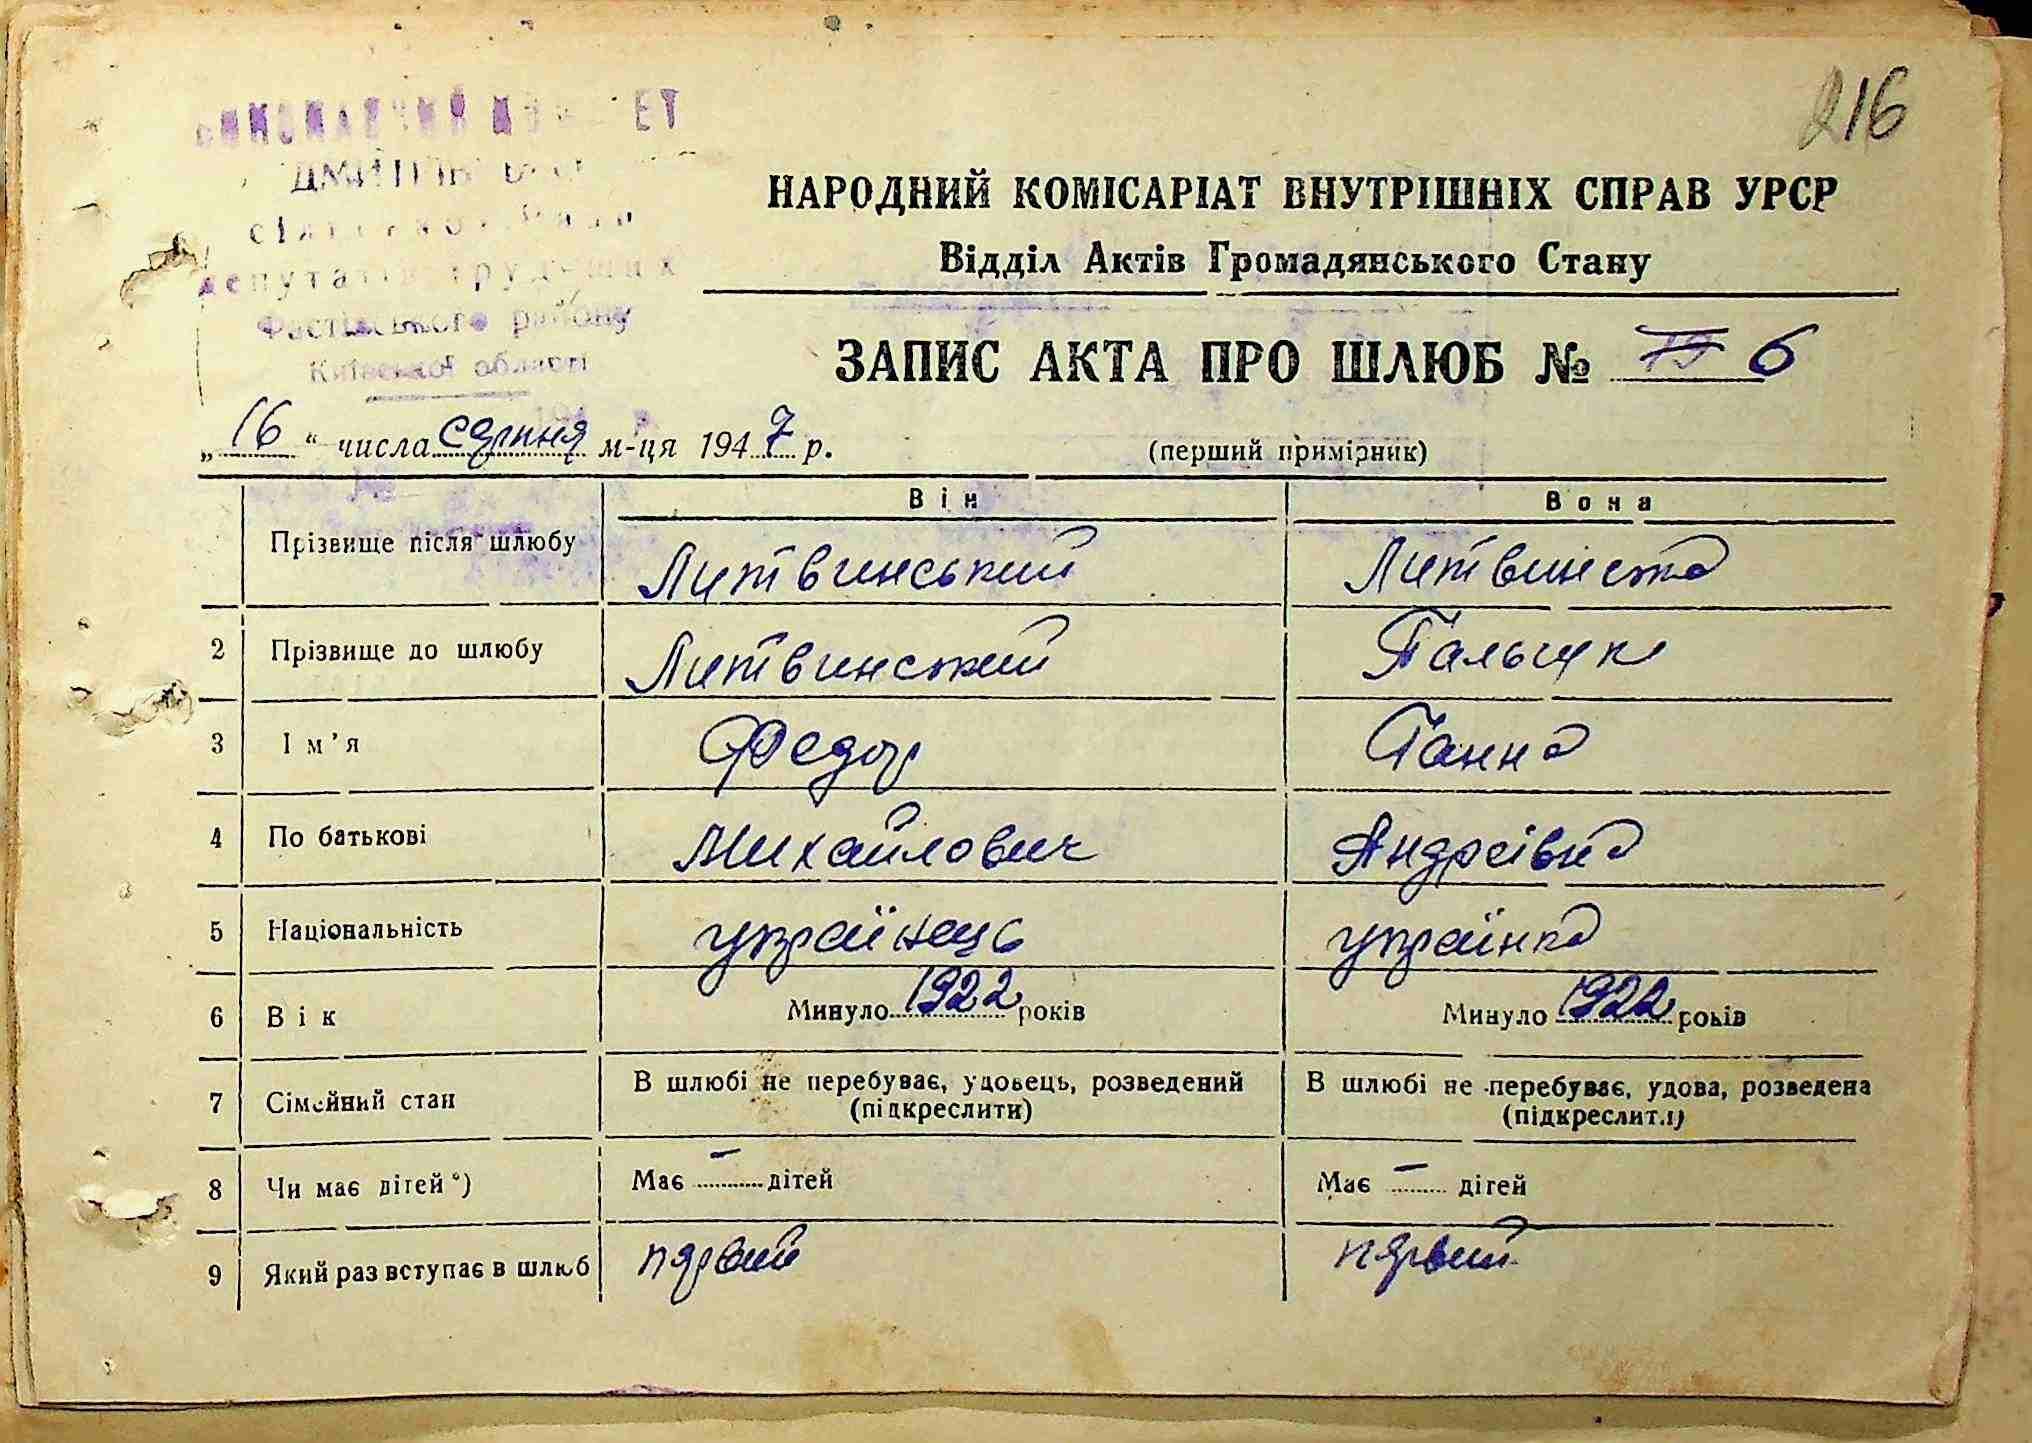 216
ВИКОНАВЧИЙ КОМІТЕТ
сільської Ради
депутатів трудящих
Фастівського району
Київської області
НАРОДНИЙ КОМІСАРІАТ ВНУТРІШНІХ СПРАВ УРСР
Відділ Актів Громадянського Стану
ЗАПИС АКТА ПРО ШЛЮБ № 6
„16“ числа серпня м-ця 1947 р.
(перший примірник)
Він Вона
Прізвище після шлюбу Литвинський Литвинська
2 Прізвище до шлюбу Литвинский
3 Ім'я Федор Ганна
4 По батькові Михайлович Андреівна
5 Національність українець українка
6 Вік Минуло 1922 років Минуло 1922 років
7 Сімейний стан В шлюбі не перебуває, удовець, розведений В шлюбі не перебуває, удова, розведена
(підкреслити) (підкреслити)
8 Чи має дітей*) Має – дітей Має – дітей
9 Який раз вступає в шлюб первий первий